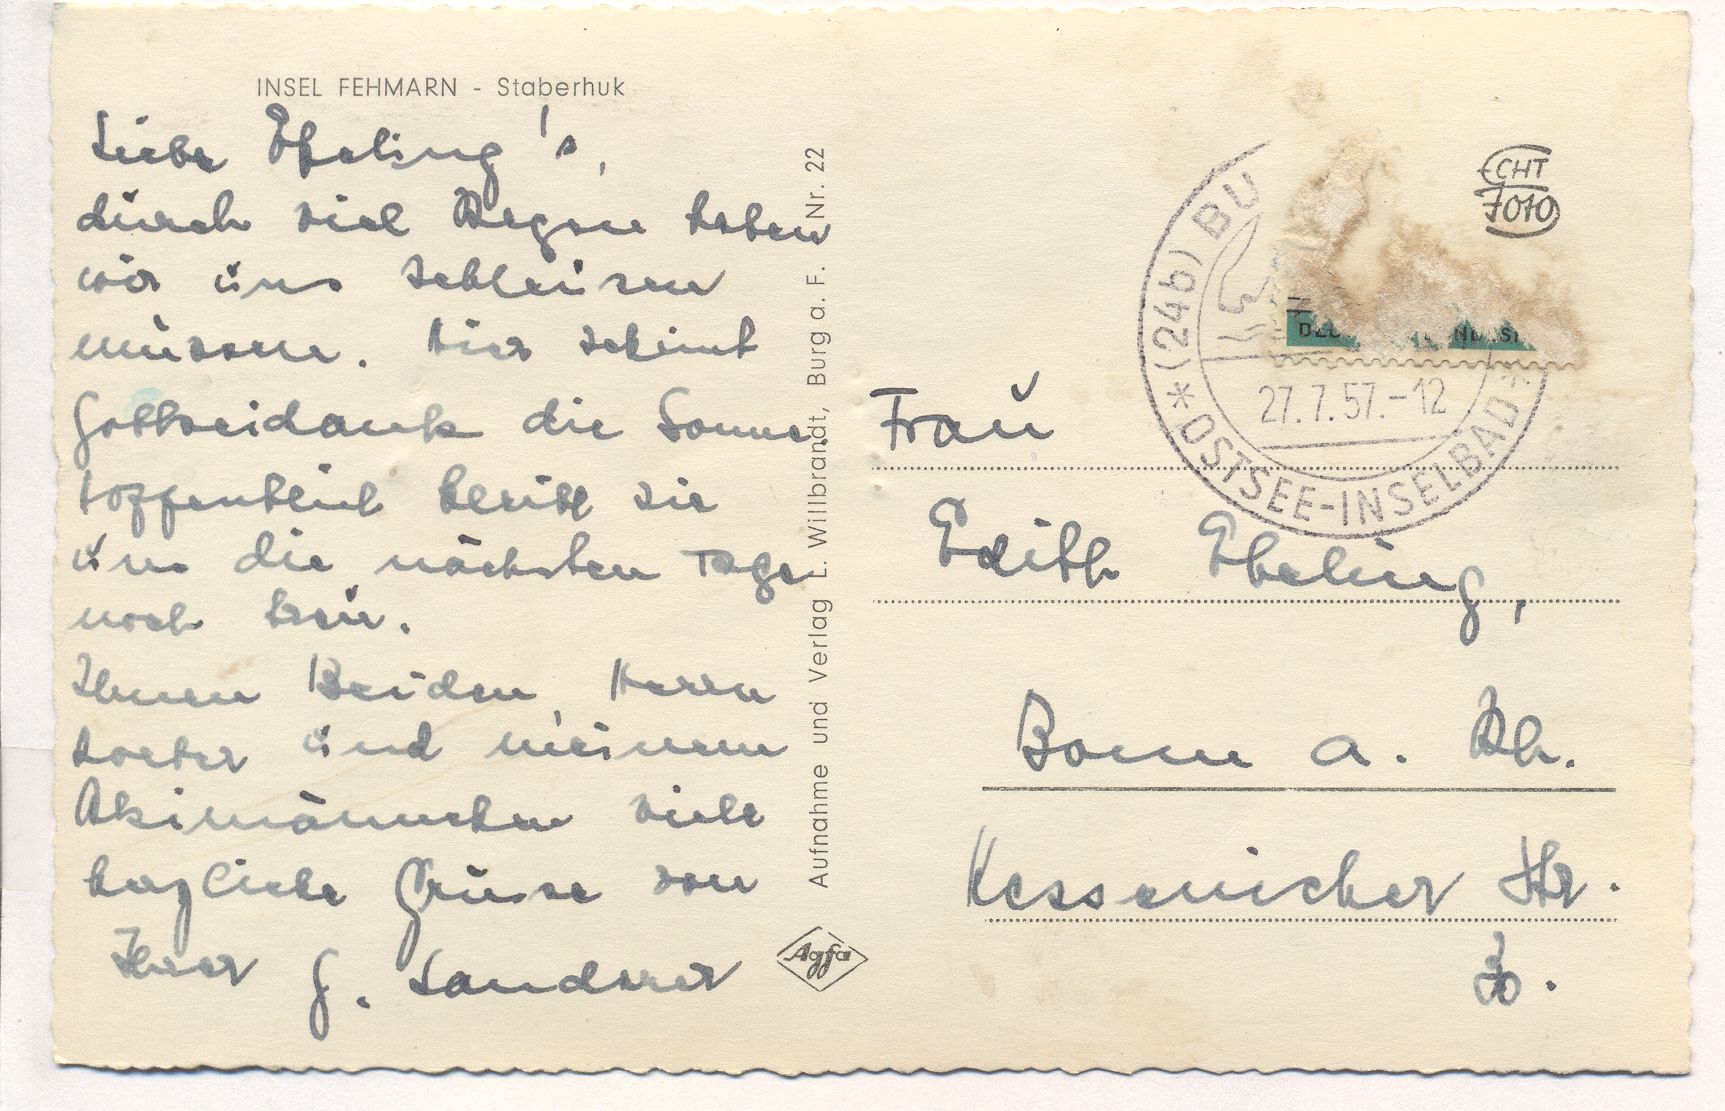 INSEL FEHMARN - Staberhuk
Liebe Ebeling's,
durch viel Regen haben
wir uns schleusen
müssen. Hier scheint
Gottseidank die Sonne.
hoffentlich bleibt sie
uns die nächsten Tage
noch treu.
Ihnen Beiden, Herrn
und meinem
Akimännchen viele
herzliche Grüsse von
Ihrer G. Sanderer
Aufnahme und Verlag L. Willbrandt, Burg a. F. Nr. 22
Agfa
ECHT
FOTO
*(24b) BU
27.7.57.-12
OSTSEE-INSELBAD
Frau
Edith Ebeling,
Bonn a. Rh.
Kessenicher Str.